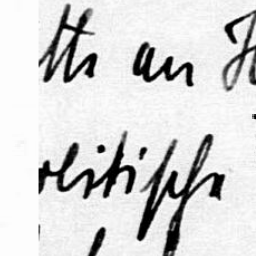 tte an
olitische